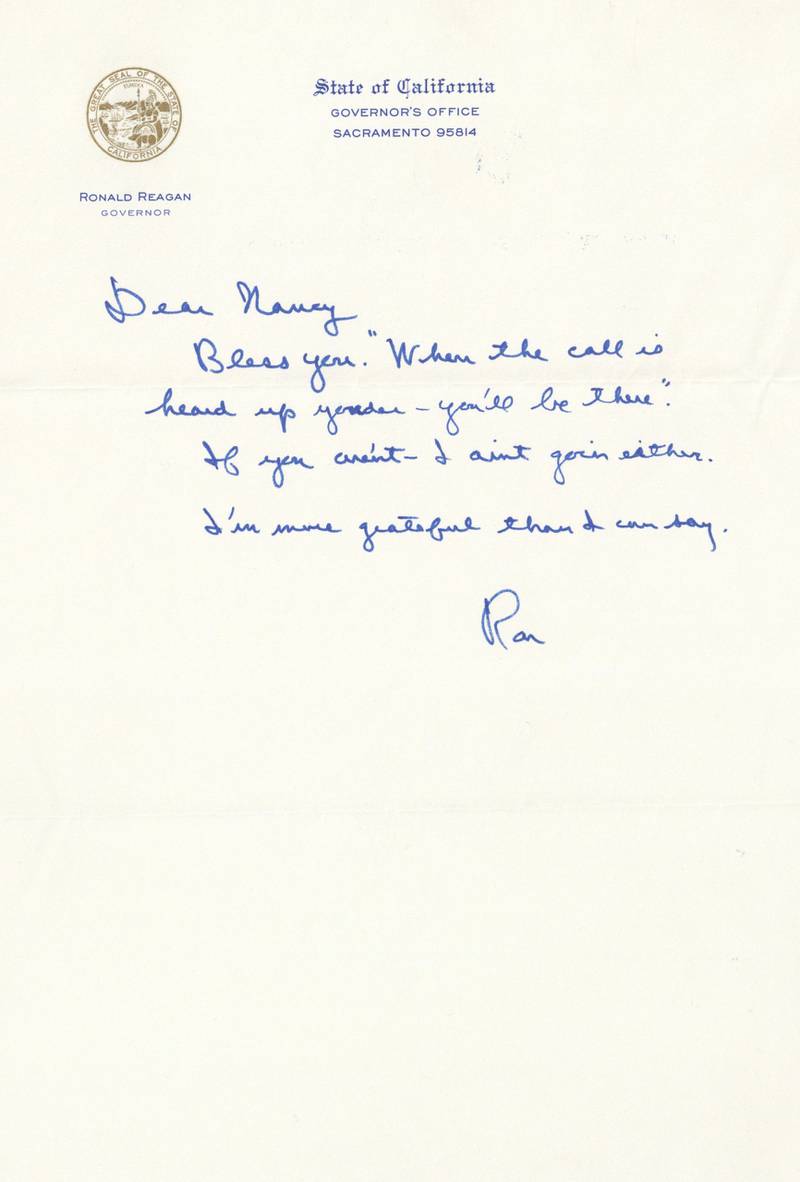 THE GREAT SEAL OF THE STATE OF CALIFORNIA
EUREKA
State of California
GOVERNOR'S OFFICE
SACRAMENTO 95814
RONALD REAGAN
GOVERNOR
Dear Nancy
Bless you. "When the call is
heard up yonder – you'll be there".
If you are'nt – I aint goin either.
I'm more grateful than I can say.
Ron